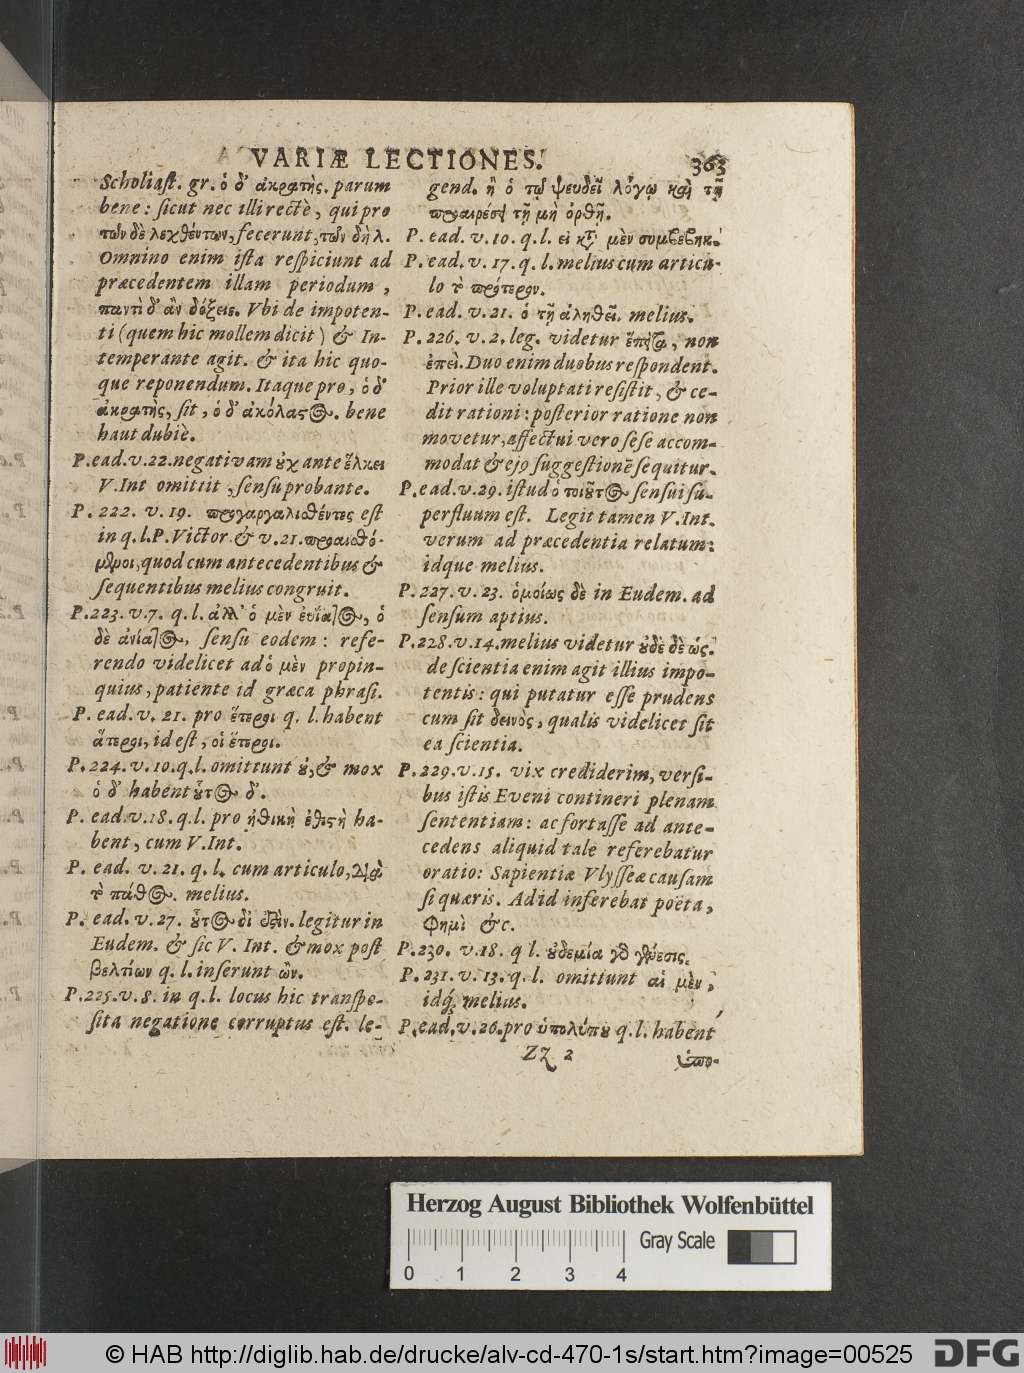 VARIÆ LECTIONES.
363
Scholiast. gr. ὁ δ' ἀκρατὴς. parum
bene: sicut nec illi rectè, qui pro
τῶν δὲ λεχθέντων, fecerunt, τῶν δὴ λ.
Omnino enim ista respiciunt ad
præcedentem illam periodum,
παντὶ δ' ἂν δόξειε. Vbi de impoten-
ti (quem hic mollem dicit) & In-
temperante agit. & ita hic quo-
que reponendum. Itaque pro, ὁ δ'
ἀκρατὴς, sit, ὁ δ' ἀκόλαστος. bene
haut dubiè.
P. ead. v. 22. negativam οὐχ ante ἕλκει
V. Int omittit, sensu probante.
P. 222. v. 19. προγαργαλισθέντες est
in q. l. P. Victor & v. 21. προαισθό-
μενοι, quod cum antecedentibus &
sequentibus melius congruit.
P. 223. v. 7. q. l. ἀλλ' ὁ μὲν εὐίατος, ὁ
δὲ ἀνίατος, sensu eodem: refe-
rendo videlicet ad ὁ μὲν propin-
quius, patiente id græca phrasi.
P. ead. v. 21. pro ἕτεροι q. l. habent
ἅτεροι, id est, οἱ ἕτεροι.
P. 224. v. 10. q. l. omittunt οὐ, & mox
ὁ δ' habent οὗτος δ'.
P. ead. v. 18. q. l. pro ἠθικὴ ἐθιστὴ ha-
bent, cum V. Int.
P. ead. v. 21. q. l. cum articulo, διὰ
τὸ πάθος. melius.
P. ead. v. 27. οὗτος δή ἐστιν. legitur in
Eudem. & sic V. Int. & mox post
βελτίων q. l. inserunt ὢν.
P. 225. v. 8. in q. l. locus hic transpo-
sita negatione corruptus est. le-
gend. ἢ ὁ τῷ ψευδεῖ λόγῳ καὶ τῇ
προαιρέσει τῇ μὴ ὀρθῇ.
P. ead. v. 10. q. l. εἰ κατὰ μὲν συμβεβηκὸς
P. ead. v. 17. q. l. melius cum articu-
lo τὸ πρότερον.
P. ead. v. 21. ὁ τῇ ἀληθεῖ. melius.
P. 226. v. 2. leg. videtur ἔπειτα, non
ἐπεὶ. Duo enim duobus respondent.
Prior ille voluptati resistit, & ce-
dit rationi: posterior ratione non
movetur, affectui vero sese accom-
modat & ejꝰ suggestionē sequitur.
P. ead. v. 29. istud ὁ τοιοῦτος sensui su-
perfluum est. Legit tamen V. Int.
verum ad præcedentia relatum:
idque melius.
P. 227. v. 23. ὁμοίως δὲ in Eudem. ad
sensum aptius.
P. 228. v. 14. melius videtur οὐδὲ δὲ ὡς.
de scientia enim agit illius impo-
tentis: qui putatur esse prudens
cum sit δεινὸς, qualis videlicet sit
ea scientia.
P. 229. v. 15. vix crediderim, versi-
bus istis Eveni contineri plenam
sententiam: ac fortasse ad ante-
cedens aliquid tale referebatur
oratio: Sapientiæ Vlysseæ causam
si quæris. Ad id inferebat poëta,
Φημὶ &c.
P. 230. v. 18. q l. οὐδεμία γὰρ γένεσις.
P. 231. v. 13. q. l. omittunt αἱ μὲν,
idq́; melius.
P. ead. v. 26. pro ὑπολύπου q. l. habent
Zz 2
ὑπο-
Herzog August Bibliothek Wolfenbüttel
Gray Scale
0 1 2 3 4
© HAB http://diglib.hab.de/drucke/alv-cd-470-1s/start.htm?image=00525
DFG